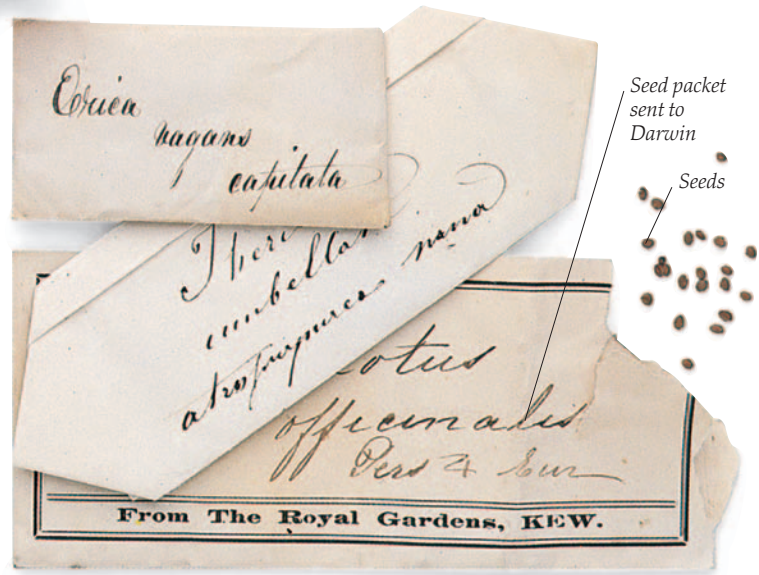 Erica
vagans
capitata
Iberi
umbellat
atropurpurea nana
otus
officinalis
Pers 4 Eur
From The Royal Gardens, KEW.
Seed packet
sent to
Darwin
Seeds